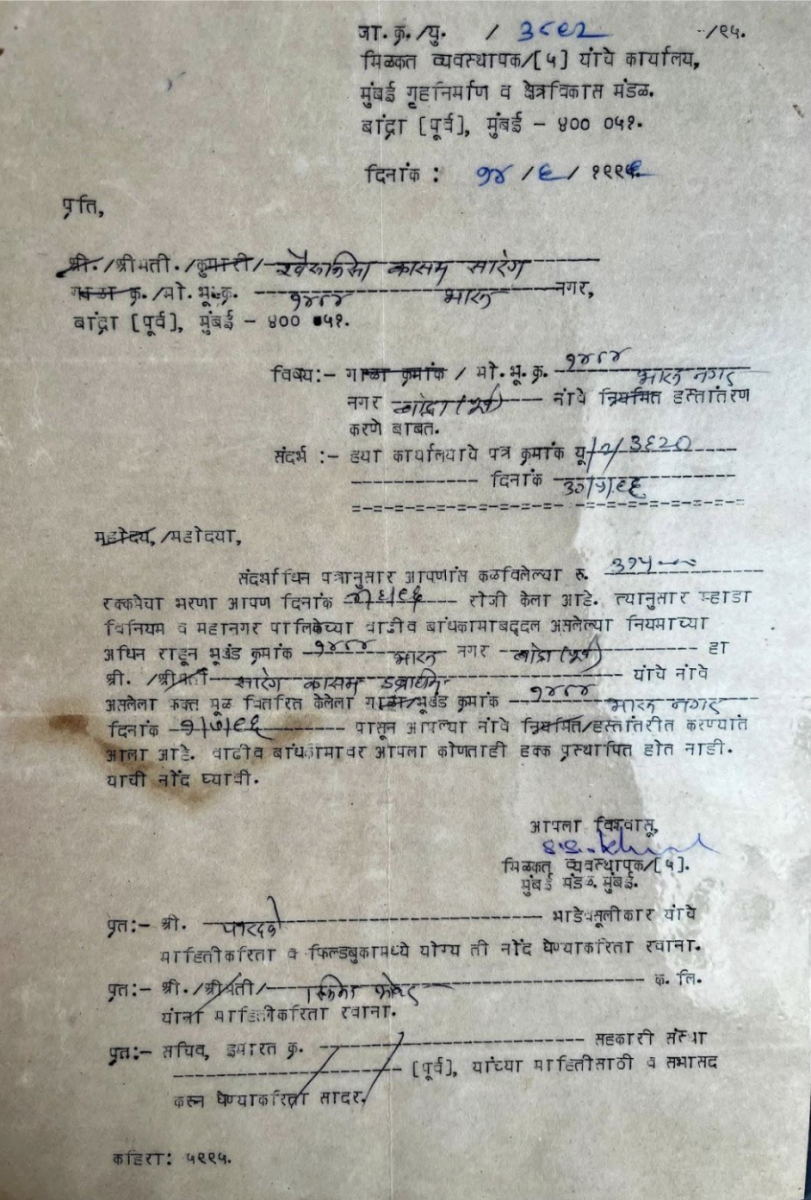 जा.क्र./यु. / ३८९२ -/९५.
मिळकत व्यवस्थापक/[५] यांचे कार्यालय,
मुंबई गृहनिर्माण व क्षेत्रविकास मंडळ.
बांद्रा [पूर्व], मुंबई - ४०० ०५१.
दिनांक : १४ / ६ / १९९६
प्रति,
श्री./श्रीमती./कुमारी/ कासम सारंग
गाळा क्र./मो.भू.क्र. १४८४ भारत नगर,
बांद्रा [पूर्व], मुंबई - ४०० ०५१.
विषय:- गाळा क्रमांक / मो.भू.क्र. १४८४ भारत नगर
नगर बांद्रा (पूर्व) नांवे नियमित हस्तांतरण
करणे बाबत.
संदर्भ :- ह्या कार्यालयाचे पत्र क्रमांक यू/२/३६२०
दिनांक
महोदय,/महोदया,
संदर्भाधिन पत्रानुसार आपणांस कळविलेल्या रु. ३१५
रक्कमेचा भरणा आपण दिनांक रोजी केला आहे. त्यानुसार म्हाडा
विनियम व महानगर पालिकेच्या वाढीव बांधकामाबद्दल असलेल्या नियमाच्या
अधिन राहून भूखंड क्रमांक १४८४ भारत नगर बांद्रा (पूर्व) हा
श्री. /श्रीमती सारंग कासम इब्राहीम यांचे नांवे
असलेला फक्त मूळ वितरित केलेला गाळा/भूखंड क्रमांक १४८४ भारत नगर
दिनांक १/७/९६ पासून आपल्या नांवे नियमित/हस्तांतरीत करण्यांत
आला आहे. वाढीव बांधकामावर आपला कोणताही हक्क प्रस्थापित होत नाही.
याची नोंद घ्यावी.
आपला विश्वासू,
मिळकत व्यवस्थापक/[५].
मुंबई मंडळ. मुंबई.
प्रत:- श्री. भाडेवसूलीकार यांचे
माहितीकरिता व फिल्डबुकामध्ये योग्य ती नोंद घेण्याकरिता रवाना.
प्रत:- श्री./श्रीमती/ क. लि.
यांना माहितीकरिता रवाना.
प्रत:- सचिव, इमारत क्र. सहकारी संस्था
[पूर्व], यांच्या माहितीसाठी व सभासद
करून घेण्याकरिता सादर.
कहिरा: ५९९५.